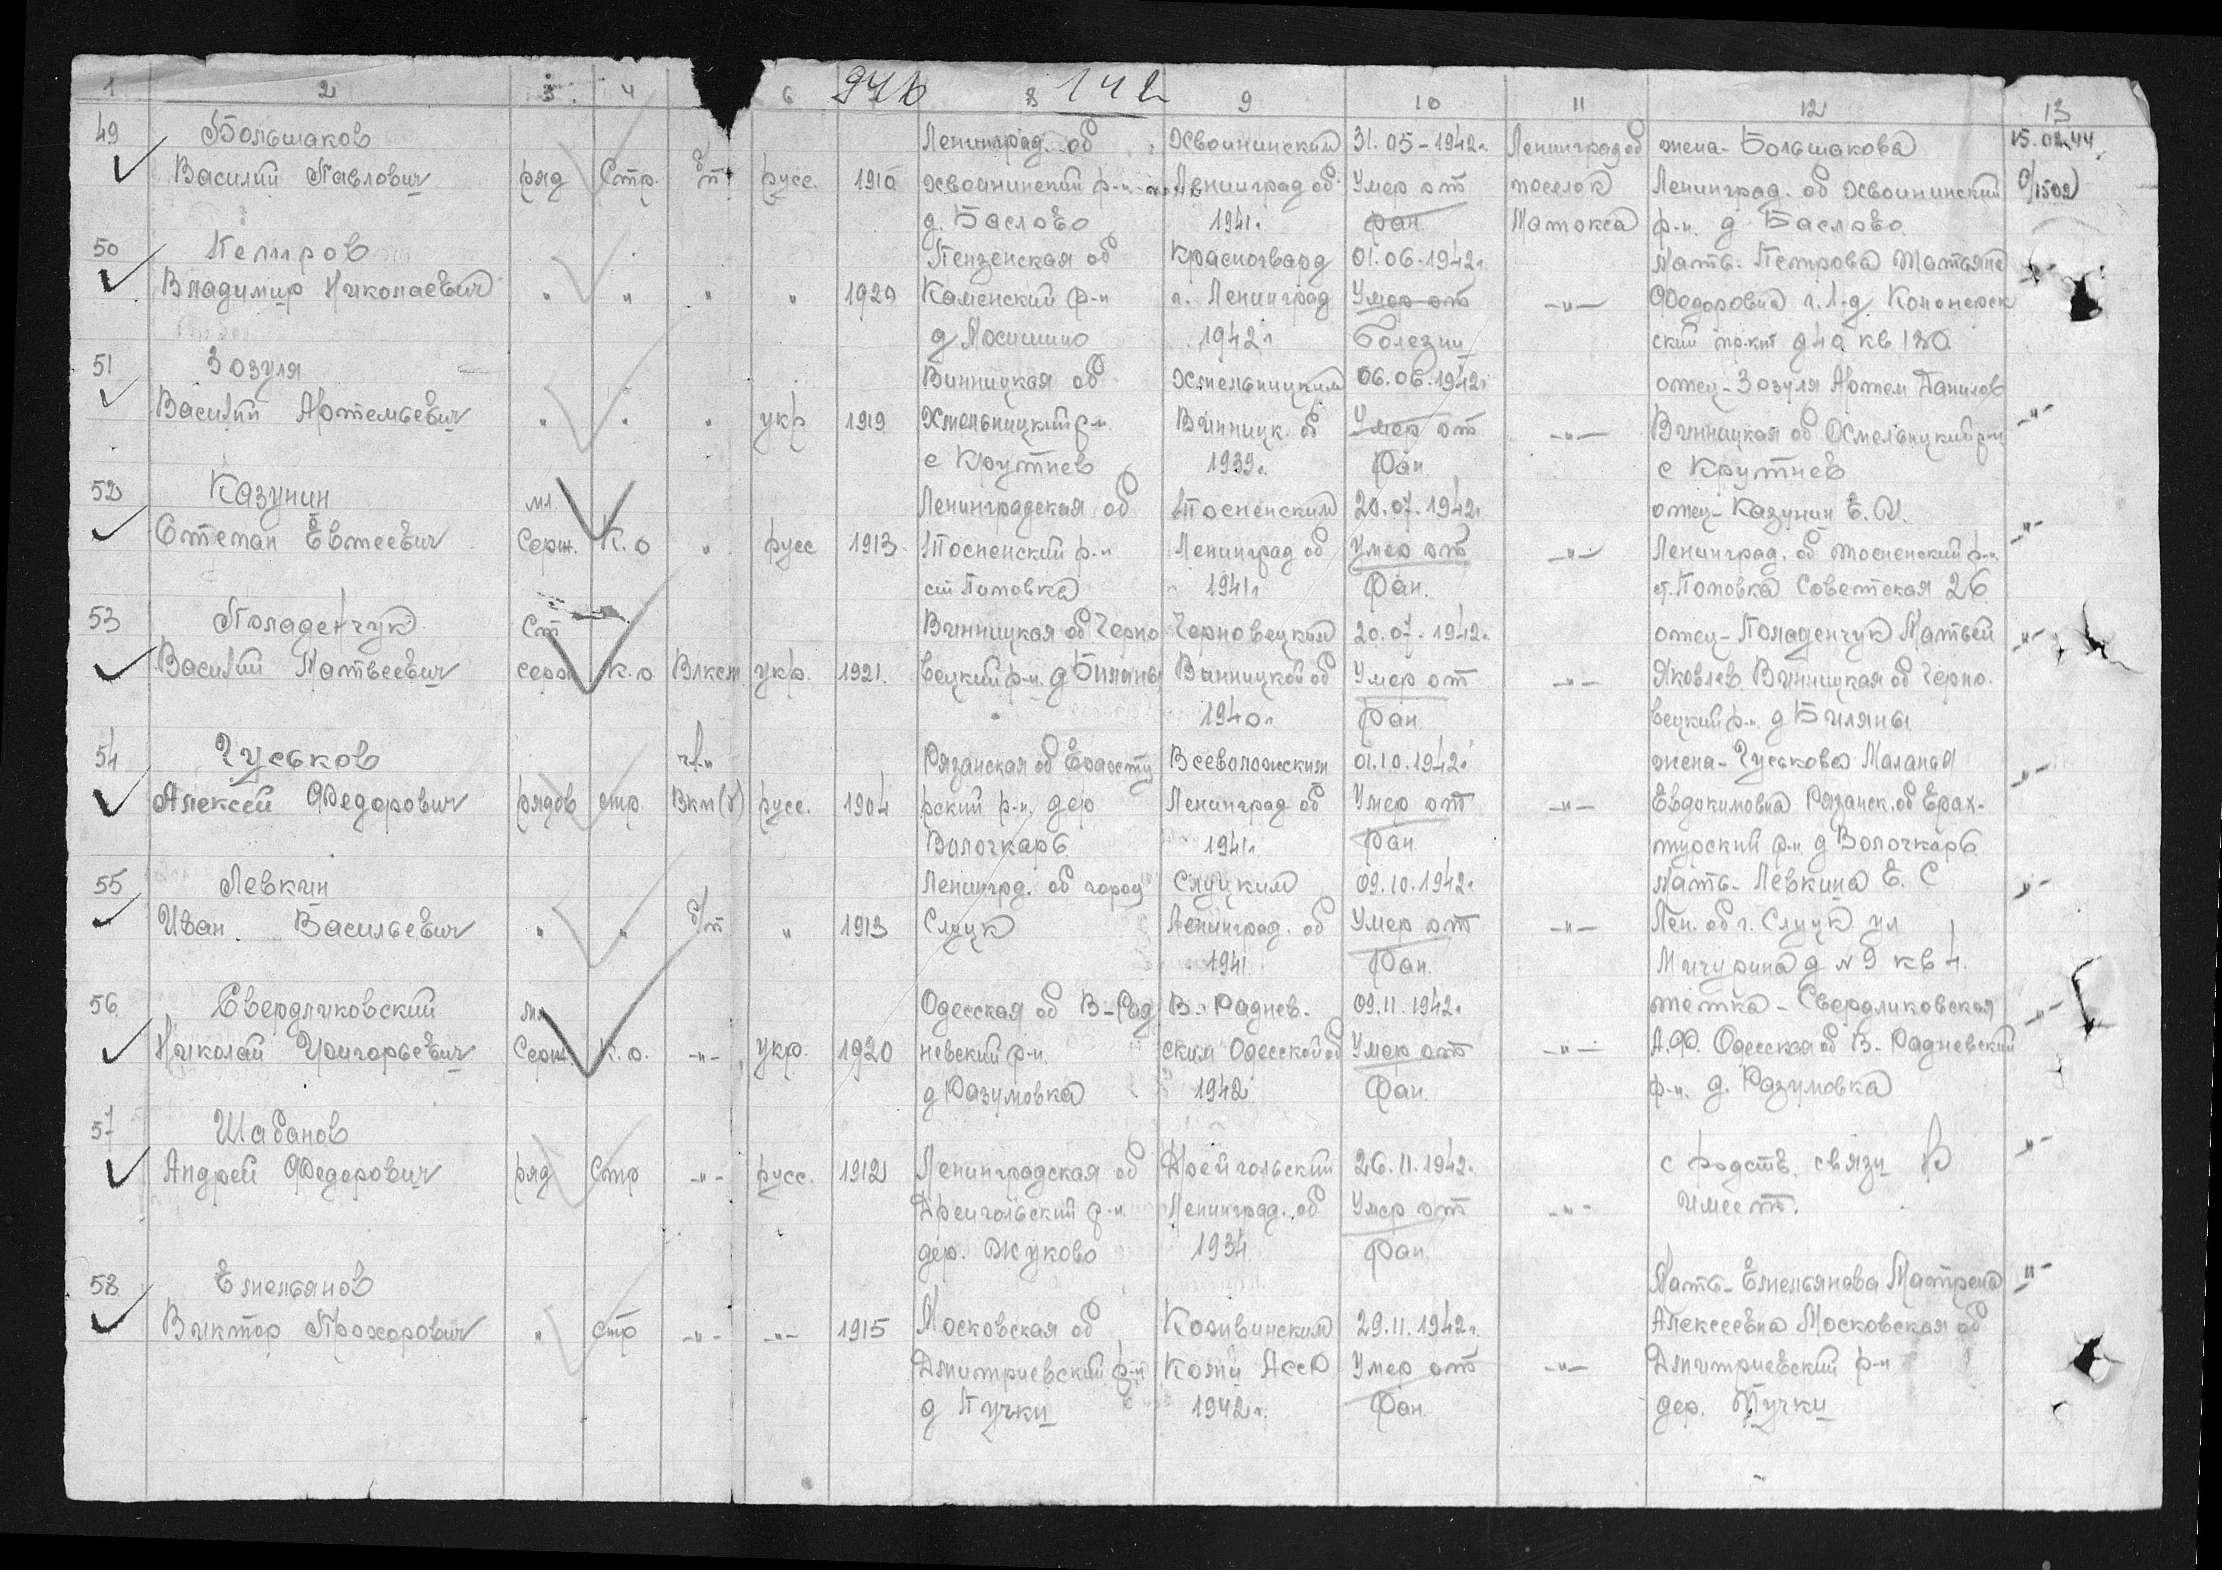 94 б 142
1 2 3 4 6 8 9 10 11 12 13
49 Большаков Ленинград. об Хвоининским 31.05-1942г. Ленинград об жена- Большакова 15.02.44
Василий Павлович ряд Стр. б/п русс. 1910 Хвоининский р-н Ленинград об Умер от поселок Ленинград. об Хвоининский 0/1502
д. Баслово 1941г. ран. Матокса р-н. д Баслово
50 Петров Пензенская об Красногвард 01.06.1942г. Мать- Петрова Татьяна
Владимир Николаевич " " " " 1929 Каменский р-н г. Ленинград Умер от -"- Федоровна г. Л-д
д 1942г болезни ский пр-кт д 40 кв 130
51 Зозуля Винницкая об Хмельницким 06.06.1942г отец- Зозуля Артем Данилов -"-
Василий Артемьевич " " " укр 1919 Хмельницкий р-н Винницк. об Умер от -"- Винницкая об Хмельницкий р-н
с Крутнев 1939г. Ран. с Крутнев
52 Казунин мл. Ленинградская об Тосненским 20.07.1942г отец- Казунин Е. -"-
Степан Евтеевич Серж. К.о " русс 1913 Тосненский р-н Ленинград об Умер от -"- Ленинград. об Тосненский р-н
ст Поповка 1941г Ран. ст. Поповка Советская 26
53 Поладенчук Ст Винницкая об Черно Черновецким 20.07.1942г. отец- Поладенчук Матвей -"-
Василий Матвеевич серж К.о Влксм укр. 1921. вецкий р-н. д Биляны Винницкой об Умер от -"- Яковлев. Винницкая об Черно.
1940г. Ран. вецкий р-н. д Биляны
54 Чуськов чл-н Рязанская об Ерахту Всеволожским 01.10.1942г. жена- Чуськова Маланья -"-
Алексей Федорович рядов стр. Вкп(б) русс. 1904 рский р-н. дер Ленинград об Умер от -"- Евдокимовна Рязанск. об Ерах-
Волочкарь 1941г. Ран. турский р-н д Волочкарь
55 Левкин Ленингрд. об город Слуцким 09.10.1942г. мать- Левкина Е. С -"-
Иван. Васильевич " " б/п " 1913 Слуцк Ленинград. об Умер от -"- Лен. об г. Слуцк ул
1941 Ран. Мичурина д № 9 кв 4.
56. Свердликовский мл Одесская об В-Рад В.-Раднев- 09.11.1942г. тётка- Свердликовская -"-
Николай Григорьевич Серж. К.о. -"- укр. 1920 невский р-н. ским Одесской об Умер от -"- А.Ф. Одесская об В-Радневский
д Разумовка 1942г Ран. р-н. д. Разумовка
57 Шабанов
Андрей Федорович ряд Стр -"- русс. 1912 Ленинградская об Дрейгольский 26.11.1942г. с родств. связи не -"-
Дрейгольский р-н. Ленинград. об Умер от -"- имеет.
дер. Жуково 1934 Ран.
58. Емельянов Мать- Емельянова Матрена -"-
Виктор Прохорович " стр -"- -"- 1915 Московская об Кожвинским 29.11.1942г. Алексеевна Московская об
Дмитриевский р-н Коми Асср Умер от -"- Дмитриевский р-н
д Пучки 1942г. Ран. дер. Пучки